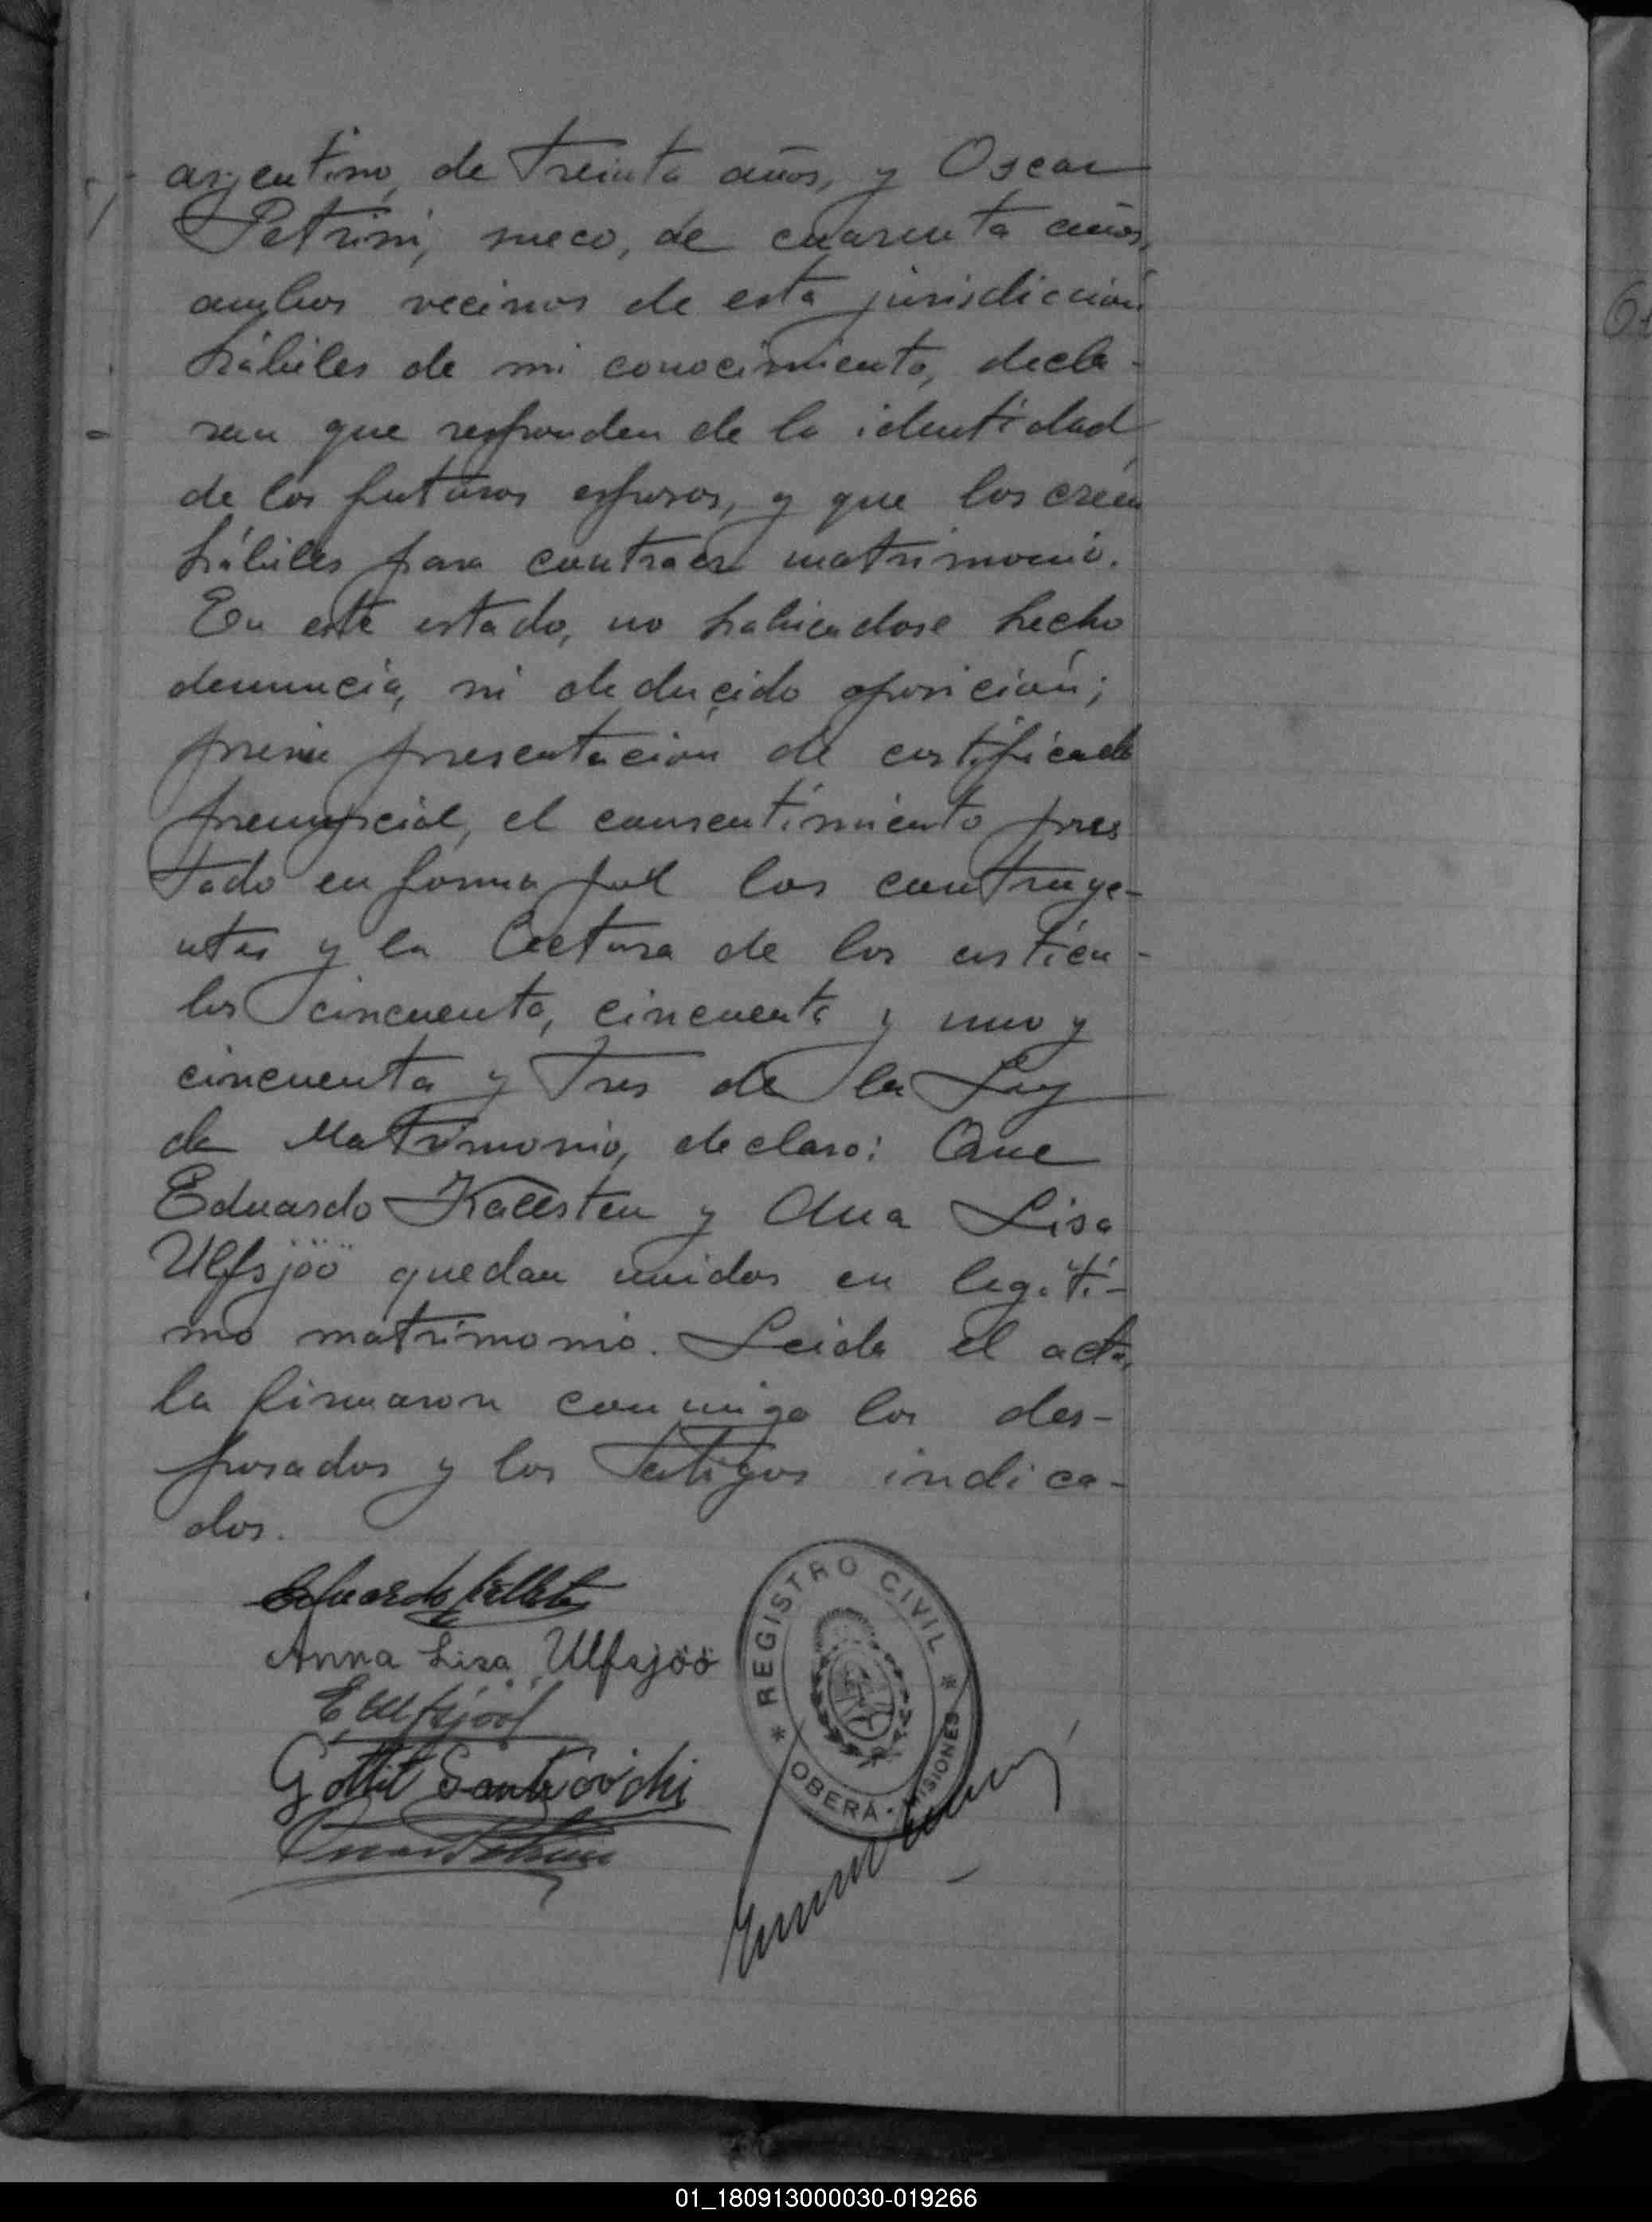 argentino, de treinta años, y Oscar
Petrini, sueco, de cuarenta años,
ambos vecinos de esta jurisdicción
hábiles de mi conocimiento, decla-
ran que responden de la identidad
de los futuros esposos, y que los creen
hábiles para contraer matrimonio.
En este estado, no habiendose hecho
denuncia, ni deducido oposición;
previa presentación de certificado
prenupcial, el consentimiento pres
tado en forma por los contraye-
ntes y la lectura de los artícu-
los cincuenta, cincuenta y uno y
cincuenta y tres de la Ley
de Matrimonio, declaro: Que
Eduardo Kallsten y Ana Lisa
Ulfsjöö quedan unidos en legíti-
mo matrimonio. Leida el acta,
la firmaron conmigo los des-
posados y los testigos indica-
dos.
Eduardo Källsten
Anna Lisa Ulfsjöö
E Ulfsjööf
Gottlit
Oscar Petrini
* REGISTRO CIVIL *
OBERÁ - MISIONES
01_180913000030-019266